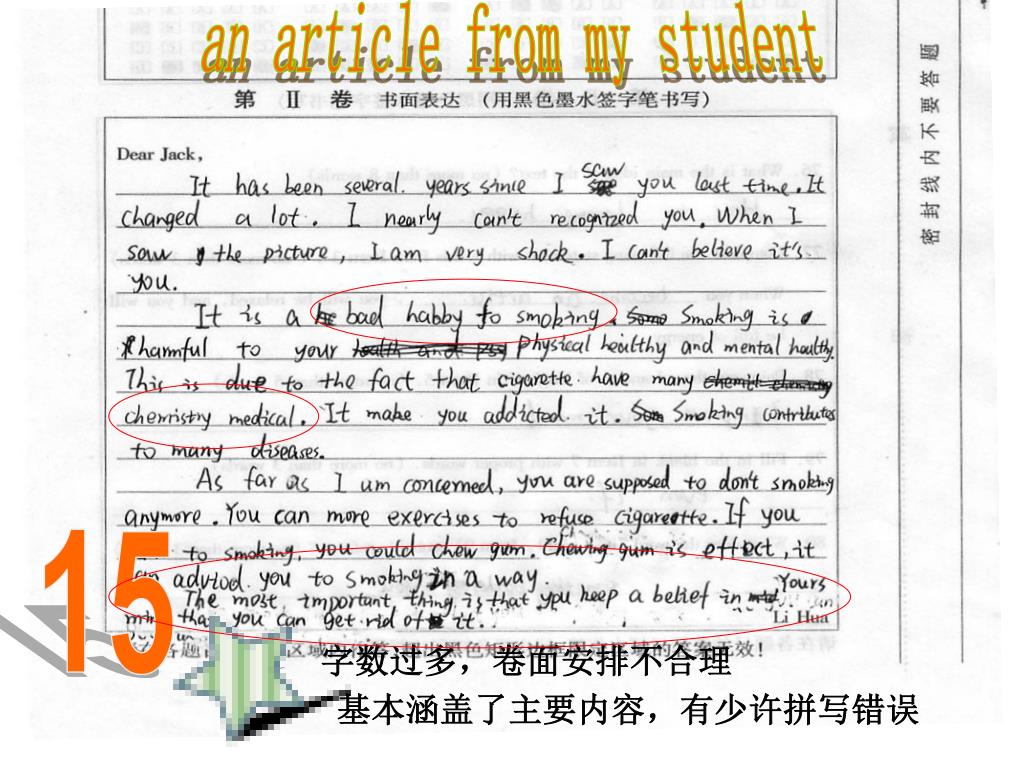 an article from my student
第 Ⅱ 卷 书面表达 (用黑色墨水签字笔书写)
密封线内不要答题
Dear Jack,
It has been several years since I saw you last time. It
changed a lot. I nearly can't recognized you. When I
saw the picture, I am very shock. I can't believe it's
you.
It is a bad habby to smoking. Smoking is
harmful to your physical healthy and mental healthy.
This is due to the fact that cigarette have many
chemistry medical. It make you addicted it. Smoking contributes
to many diseases.
As far as I am concerned, you are supposed to don't smoking
anymore. You can more exercises to refuse cigarette. If you
to smoking, you could chew gum. Chewing gum is effect, it
adviod you to smoking in a way.
The most important thing is that you keep a belief in
that you can get rid of it.
Yours
Li Hua
15
字数过多，卷面安排不合理
基本涵盖了主要内容，有少许拼写错误